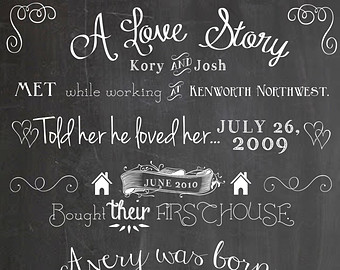 A Love Story
Kory AND Josh
MET while working AT KENWORTH NORTHWEST.
Told her he loved her... JULY 26, 2009
JUNE 2010
Bought their FIRST HOUSE
Avery was born